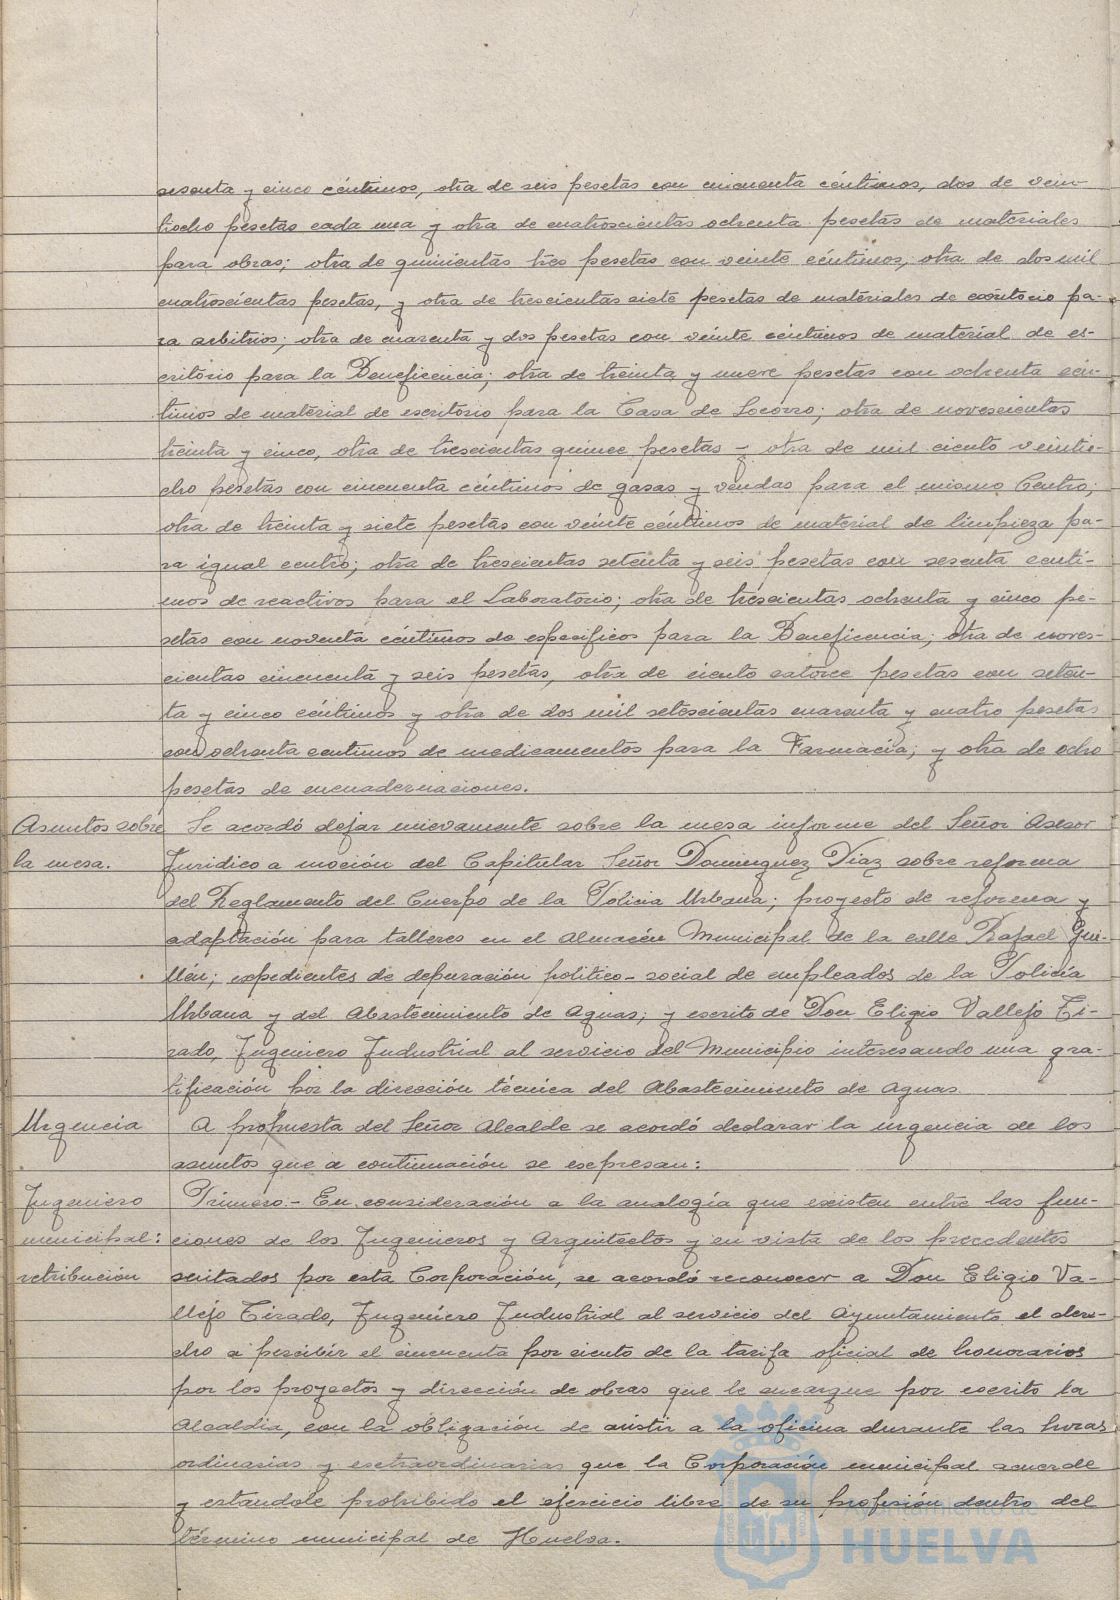 sesenta y cinco céntimos, otra de seis pesetas con cincuenta céntimos, dos de vein-
tiocho pesetas cada una y otra de cuatroscientas ochenta pesetas de materiales
para obras; otra de quinientas tres pesetas con veinte céntimos; otra de dos mil
cuatroscientas pesetas, y otra de trescientas siete pesetas de materiales de escritorio pa-
ra arbitrios; otra de cuarenta y dos pesetas con veinte céntimos de material de es-
critorio para la Beneficencia; otra de treinta y nueve pesetas con ochenta cén-
timos de material de escritorio para la Casa de Socorro; otra de novescientas
treinta y cinco, otra de trescientas quince pesetas y otra de mil ciento veintio-
cho pesetas con cincuenta céntimos de gasas y vendas para el mismo Centro;
otra de treinta y siete pesetas con veinte céntimos de material de limpieza pa-
ra igual centro; otra de trescientas setenta y seis pesetas con sesenta centi-
mos de reactivos para el Laboratorio; otra de trescientas ochenta y cinco pe-
setas con noventa céntimos de especificos para la Beneficencia; otra de noves-
cientas cincuenta y seis pesetas, otra de ciento catorce pesetas con seten-
ta y cinco céntimos y otra de dos mil setescientas cuarenta y cuatro pesetas
con ochenta centimos de medicamentos para la Farmacia; y otra de ocho
pesetas de encuadernaciones.
Asuntos sobre Se acordó dejar nuevamente sobre la mesa informe del Señor Asesor
la mesa. Juridico a moción del Capitular Señor Dominguez Diaz sobre reforma
del Reglamento del Cuerpo de la Policia Urbana; proyecto de reforma y
adaptación para talleres en el Almacén Municipal de la calle Rafael Gui-
llén; expedientes de depuración politico-social de empleados de la Policía
Urbana y del Abastecimiento de Aguas; y escrito de Don Eligio Vallejo Ti-
rado, Ingeniero Industrial al servicio del Municipio interesando una gra-
tificación por la dirección técnica del Abastecimiento de Aguas.
Urgencia A propuesta del Señor Alcalde se acordó declarar la urgencia de los
asuntos que a continuación se expresan:
Ingeniero Primero.- En consideración a la analogía que existen entre las fun-
municipal: ciones de los Ingenieros y Arquitectos y en vista de los precedentes
retribución sentados por esta Corporación, se acordó reconocer a Don Eligio Va-
llejo Tirado, Ingeniero Industrial al servicio del Ayuntamiento el dere-
cho a percibir el cincuenta por ciento de la tarifa oficial de honorarios
por los proyectos y dirección de obras que le encargue por escrito la
Alcaldia, con la obligación de asistir a la oficina durante las horas
ordinarias y extraordinarias que la Corporación municipal acuerde
y estandole prohibido el ejercicio libre de su profesión dentro del
término municipal de Huelva.
Ayuntamiento de
HUELVA